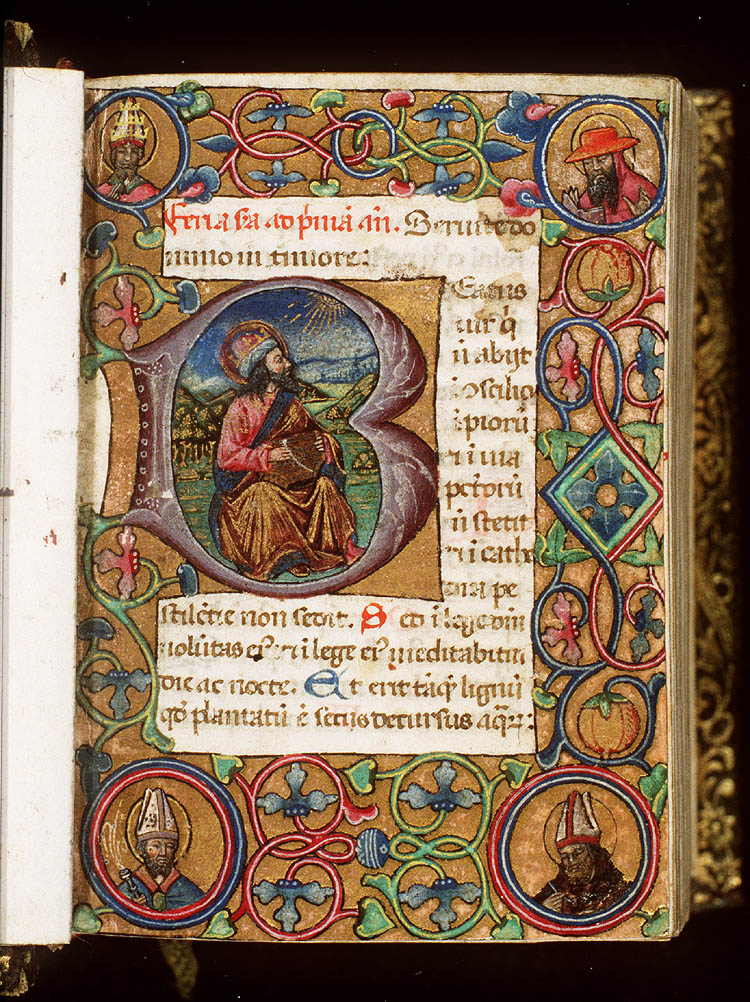 Feria sa ad p̃mã añ. Seruite do
mino in timore:
B
Eatus
uir q̃
ñ abijt
ĩ cõsilio
ĩpiorũ
⁊ ĩ uia
pctorũ
ñ stetit
⁊ ĩ cathe
dra pe
stilẽtie non sedit. Sed ĩ lege dñi
uolũtas eꝰ ⁊ ĩ lege eꝰ meditabitur
die ac nocte. Et erit tãq̃ lignũ
qđ plantatũ ẽ secus decursus aq̃ꝝ: